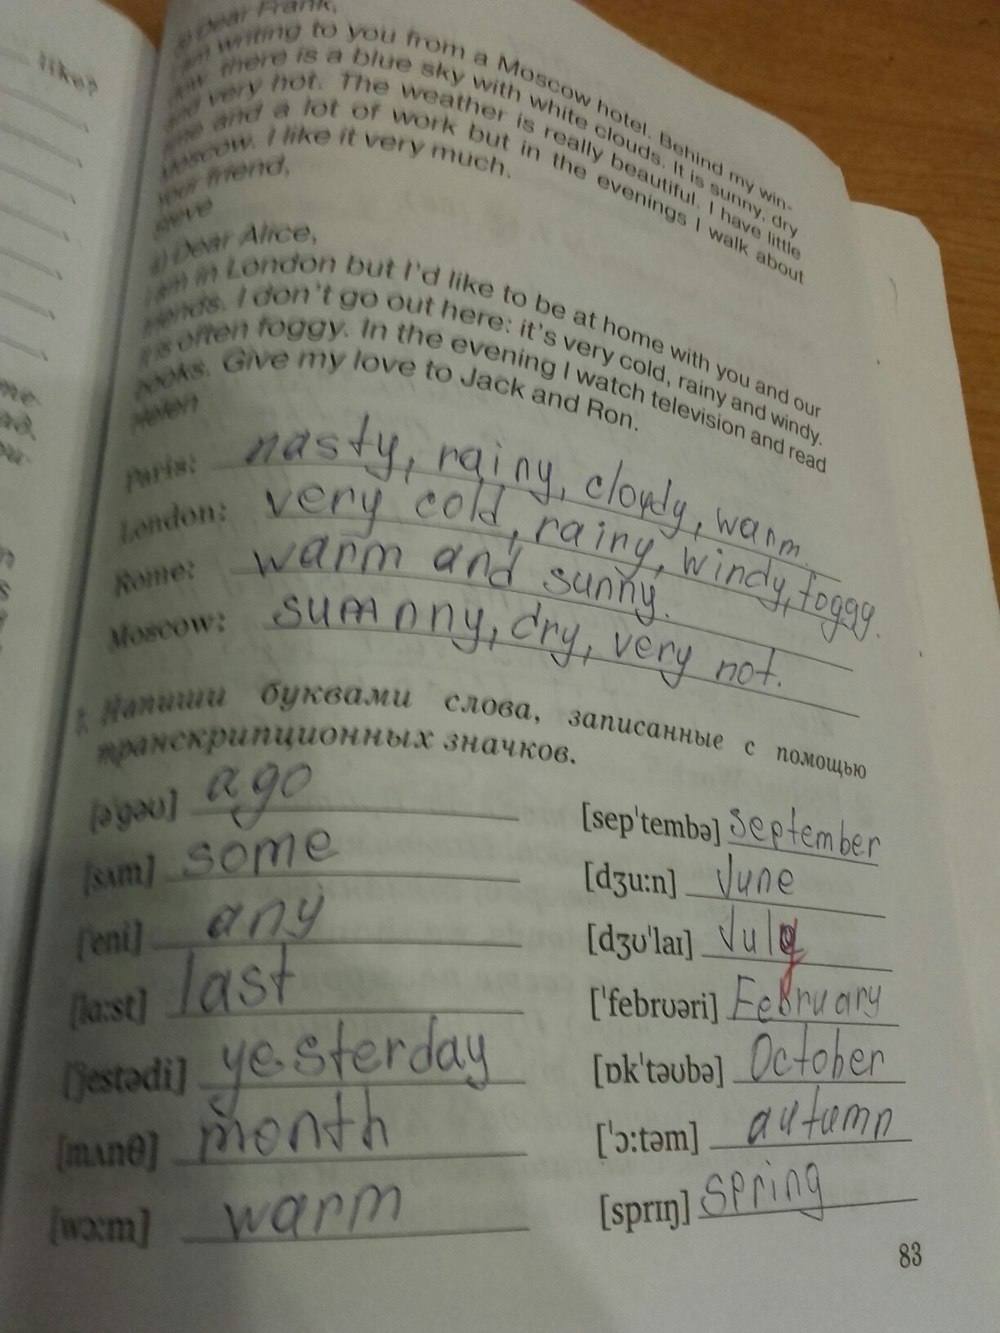 like?
Dear Frank,
I am writing to you from a Moscow hotel. Behind my win-
dow there is a blue sky with white clouds. It is sunny, dry
and very hot. The weather is really beautiful. I have little
time and a lot of work but in the evenings I walk about
Moscow. I like it very much.
Your friend,
Steve
Dear Alice,
I am in London but I'd like to be at home with you and our
friends. I don't go out here: it's very cold, rainy and windy.
It is often foggy. In the evening I watch television and read
books. Give my love to Jack and Ron.
Helen
Paris: nasty, rainy, cloudy, warm.
London: very cold, rainy, windy, foggy.
Rome: warm and sunny.
Moscow: sumnny, dry, very not.
Напиши буквами слова, записанные с помощью
транскрипционных значков.
[ə'gəʊ] ago
[sʌm] some
['eni] any
[lɑ:st] last
['jestədi] yesterday
[mʌnθ] month
[wɔ:m] warm
[sep'tembə] September
[dʒu:n] June
[dʒʊ'laɪ] July
['febrʊəri] February
[ɒk'təʊbə] October
['ɔ:təm] autumn
[sprɪŋ] spring
83